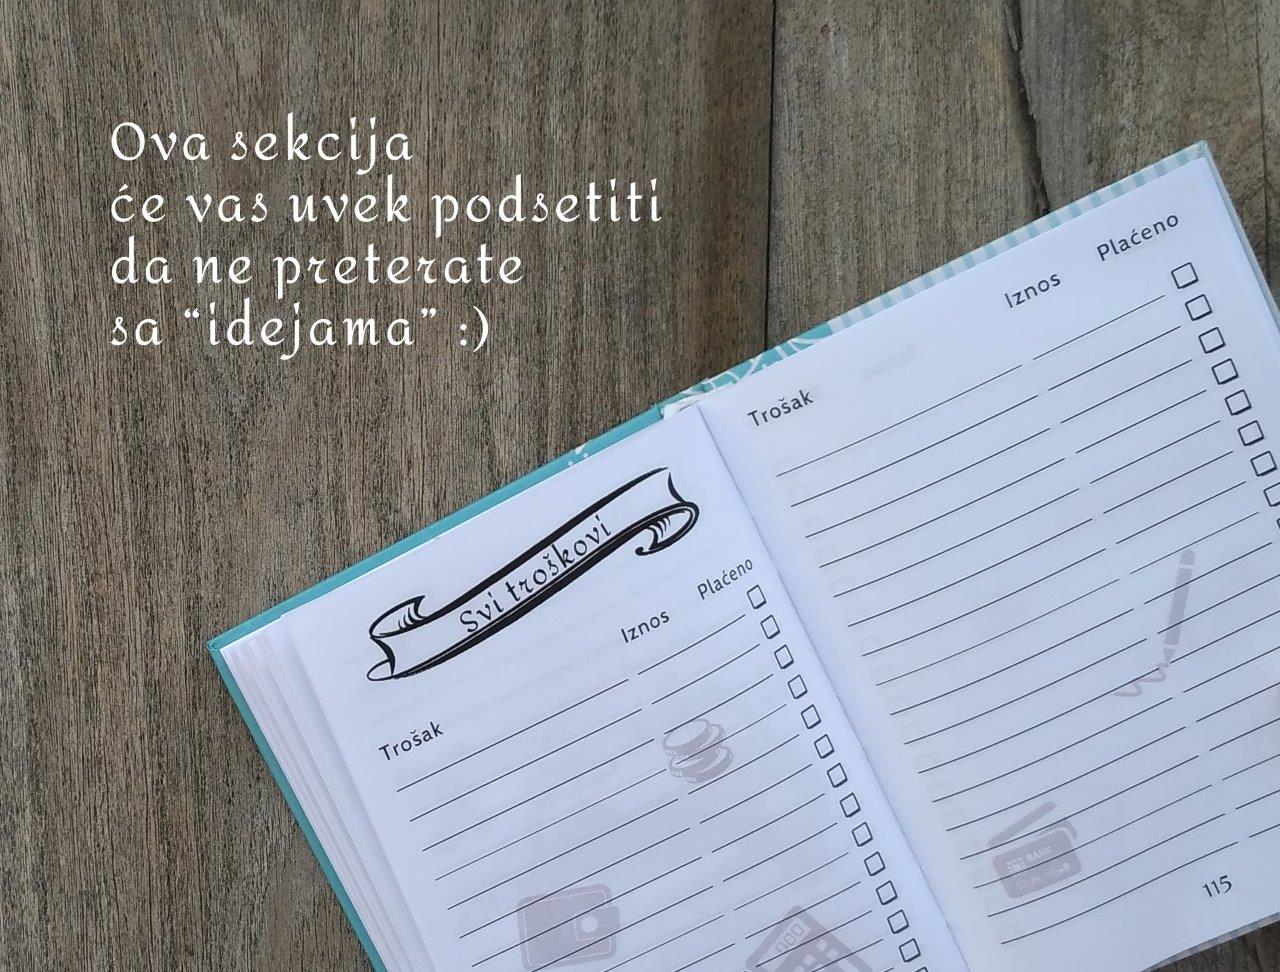 Ova sekcija
će vas uvek podsetiti
da ne preterate
sa “idejama” :)
Svi troškovi
Trošak
Iznos
Plaćeno
Trošak
Iznos
Plaćeno
BANK
115